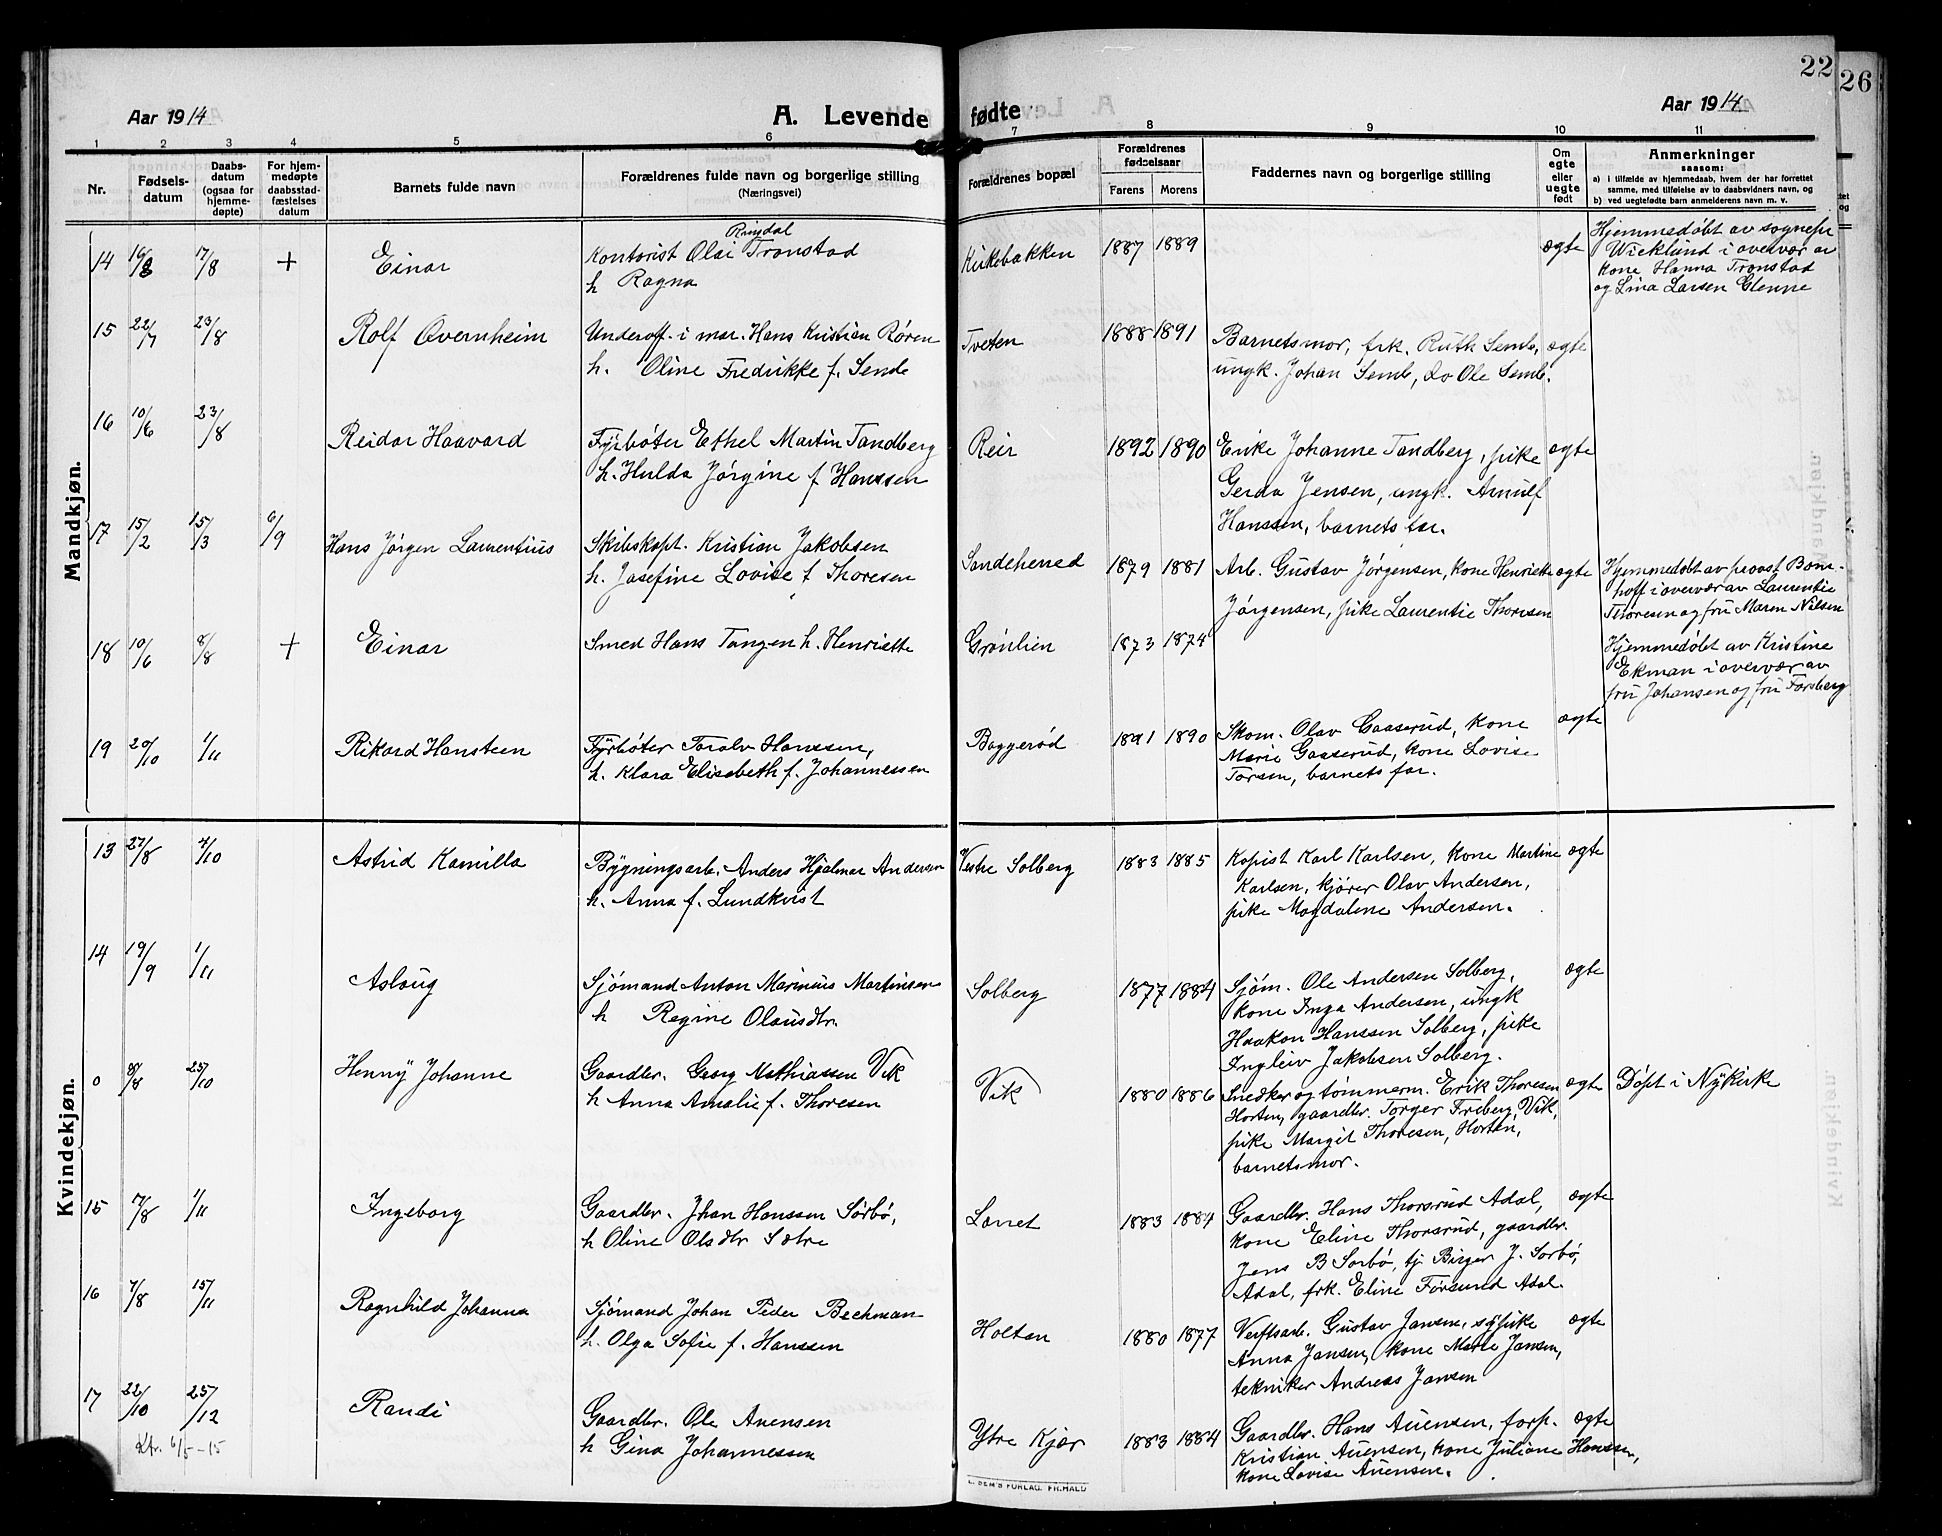 22
26
Aar 1914
A. Levende fødte
Aar 1914
1 2 3 4 5 6 7 8 9 10 11
Nr.
Fødsels-
datum
Daabs-
datum
(ogsaa for
hjemme-
døpte)
For hjem-
medøpte
daabsstad-
fæstelses
datum
Barnets fulde navn
Forældrenes fulde navn og borgerlige stilling
(Næringsvei)
Forældrenes bopæl
Forældrenes
fødselsaar
Farens
Morens
Faddernes navn og borgerlige stilling
Om
egte
eller
uegte
født
Anmerkninger
saasom:
a) i tilfælde av hjemmedaab, hvem der har forrettet
samme, med tilføielse av to daabsvidners navn, og
b) ved uegtefødte barn anmelderens navn m. v.
Mandkjøn.
14 16/8 17/8 + Einar
Ringdal
Kontorist Olai Tronstad
h Ragna
Kirkebakken 1887 1889 ægte
Hjemmedøbt av sognepr
Wicklund i overvær av
kone Hanna Tronstad
og Lina Larsen Glenne
15 22/7 23/8 Rolf Overnheim
Underoff. i mar. Hans Kristian Røren
h. Oline Fredrikke f. Sende
Tveten 1888 1891
Barnetsmor, frk. Ruth Semb,
ungk. Johan Semb, do Ole Semb.
ægte
16 10/6 23/8 Reidar Haavard
Fyrbøter Ethel Martin Tandberg
h. Hulda Jørgine f Hanssen
Reir 1892 1890
Enke Johanne Tandberg, pike
Gerda Jensen, ungk. Arnulf
Hanssen, barnets far.
ægte
17 15/2 15/3 6/9 Hans Jørgen Laurentius
Skibskapt. Kristian Jakobsen
h. Josefine Lovise f Thoresen
Sandeherred 1879 1881
Arb. Gustav Jørgensen, kone Henriette
Jørgensen, pike Laurentie Thoresen
ægte
Hjemmedøbt av provst Bom-
hoff i overvær av Laurentie
Thoresen og fru Maren Nilsen
18 10/6 8/8 + Einar
Smed Hans Tangen h. Henriette
Grønlien 1873 1874
Hjemmedøbt av Kristine
Ekman i overvær av
fru Johansen og fru Forsberg
19 20/10 1/11 Rikard Hansteen
Fyrbøter Toralv Hanssen,
h. Klara Elisabeth f. Johannessen
Baggerød 1891 1890
Skom. Olav Gaaserud, kone
Marie Gaaserud, kone Lovise
Torsen, barnets far.
ægte
Kvindekjøn.
13 27/8 4/10 Astrid Kamilla
Bygningsarb. Anders Hjalmar Andersen
h. Anna f. Lundkvist
Vestre Solberg 1883 1885
Kopist Karl Karlsen, kone Martine
Karlsen, kjører Olav Andersen,
pike Magdalene Andersen.
ægte
14 19/9 1/11 Aslaug
Sjømand Anton Marinius Martinsen
h Regine Olausdtr.
Solberg 1877 1884
Sjøm. Ole Andersen Solberg,
kone Inga Andersen, ungk
Haakon Hanssen Solberg, pike
Ingleiv Jakobsen Solberg.
ægte
0 8/8 25/10 Henny Johanne
Gaardbr. Georg Mathiassen Vik
h Anna Amalie f. Thoresen
Vik 1880 1886
Snedker og tømmerm. Erik Thoresen
Horten, gaardbr. Torger Freberg, Vik,
pike Margit Thoresen, Horten,
barnetsmor.
ægte
Døpt i Nykirke
15 7/8 1/11 Ingeborg
Gaardbr. Johan Hanssen Sørbø,
h Oline Olsdtr Sætre
Lørret 1883 1884
Gaardbr. Hans Thorsrud Adal,
kone Eline Thorsrud, gaardbr.
Jens B Sørbø, tj Birger J. Sørbø,
Adal, frk. Eline Førsund Adal.
ægte
16 7/8 15/11 Ragnhild Johanna
Sjømand Johan Peder Bechman
h. Olga Sofie f. Hanssen
Holtan 1880 1877
Verftsarb. Gustav Jansen, sypike
Anna Jansen, kone Marte Jansen,
tekniker Andreas Jansen
ægte
17 22/10 25/12 Randi
Gaardbr. Ole Auensen
h Gina Johannessen
Ytre Kjær 1883 1884
Gaardbr. Hans Auensen, forp.
Kristian Auensen, kone Juliane Hanssen,
kone Lovise Auensen.
ægte
Ktr. 6/5-15
FORLAG. FR. HALD